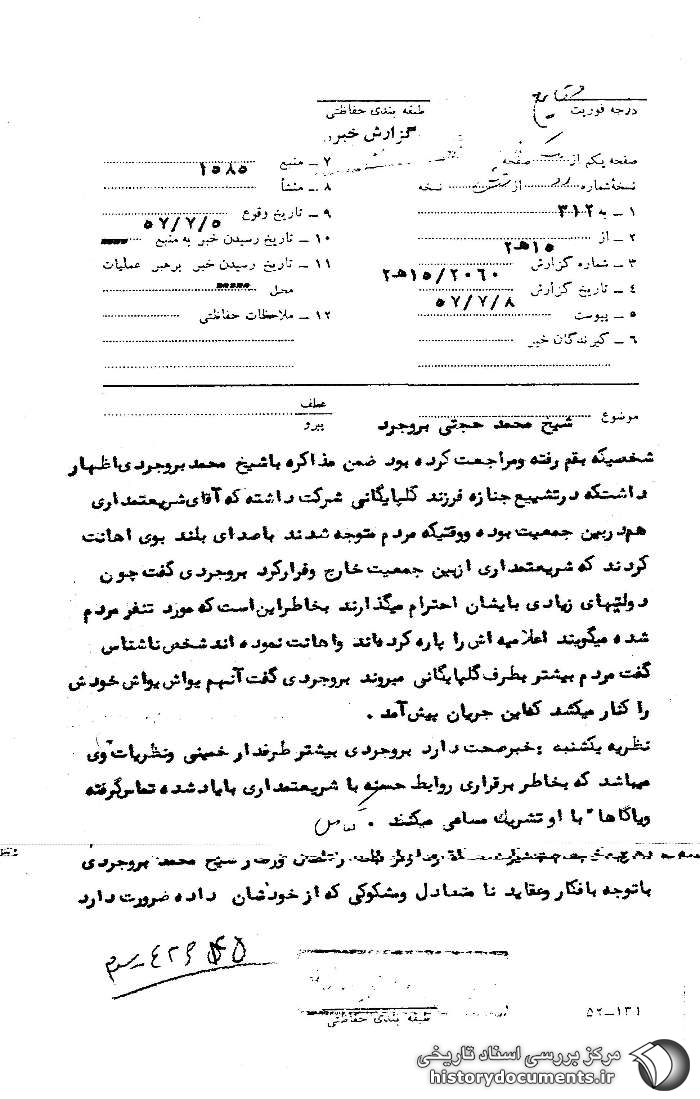 درجه فوریت
طبقه بندی حفاظتی
گزارش خبر
صفحه یکم از صفحه
نسخهٔ شماره از نسخه
۱ ـ به ۳۱۲
۲ ـ از ۱۵ هـ ۲
۳ ـ شماره گزارش ۲۰۶۰/ ۱۵ هـ ۲
۴ ـ تاریخ گزارش ۵۷/۷/۸
۵ ـ پیوست
۶ ـ گیرندگان خبر
۷ ـ منبع ۱۵۸۵
۸ ـ منشأ
۹ ـ تاریخ وقوع ۵۷/۷/۵
۱۰ ـ تاریخ رسیدن خبر به منبع
۱۱ ـ تاریخ رسیدن خبر برهبر عملیات
محل
۱۲ ـ ملاحظات حفاظتی
موضوع شیخ محمد حجتی بروجرد
عطف
پیرو
شخصیکه بقم رفته ومراجعت کرده بود ضمن مذاکره باشیخ محمد بروجردی اظهار
داشتکه درتشییع جنازه فرزند گلپایگانی شرکت داشته که آقای شریعتمداری
هم دربین جمعیت بوده ووقتیکه مردم متوجه شدند باصدای بلند بوی اهانت
کردند که شریعتمداری ازبین جمعیت خارج وفرارکرد بروجردی گفت چون
دولتیهای زیادی بایشان احترام میگذارند بخاطراین است که مورد تنفر مردم
شده میگویند اعلامیه اش را پاره کرده‌اند واهانت نموده اند شخص ناشناس
گفت مردم بیشتر بطرف گلپایگانی میروند بروجردی گفت آنهم یواش یواش خودش
را کنار میکشد که این جریان پیش آمد .
نظریه یکشنبه : خبرصحت دارد بروجردی بیشتر طرفدار خمینی ونظریات وی
میباشد که بخاطر برقراری روابط حسنه با شریعتمداری بایادشده تماس گرفته
وباگاها" با او تشریک مساعی میکند .
شیخ محمد بروجردی
باتوجه بافکار وعقاید نا متعادل ومشکوکی که از خودشان داده ضرورت دارد
طبقه بندی حفاظتی
۱۳۱ـ۵۲
مرکز بررسی اسناد تاریخی
historydocuments.ir